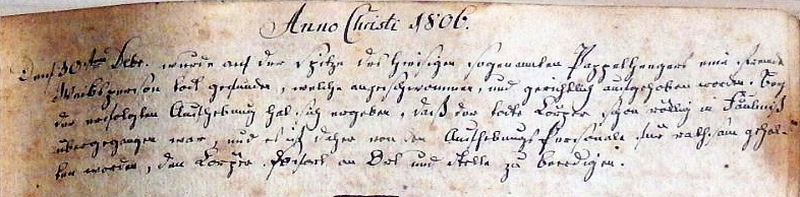 Anno Christi 1806.
Den 30ten Febr. wurde auf der Spitze des hiesigen sogenannten Pappelhengers eine fremde
Weibsperson todt gefunden, welche angeschwommen, und gerichtlich aufgehoben worden. Bey
der erfolgten Aufhebung hat sich ergeben, daß der todte Körper schon völlig in Fäulniß
übergegangen war, und es ist daher von dem Aufhebungs Personale für rathsam gehal-
ten worden, den Körper sofort an Ort und Stelle zu beerdigen.